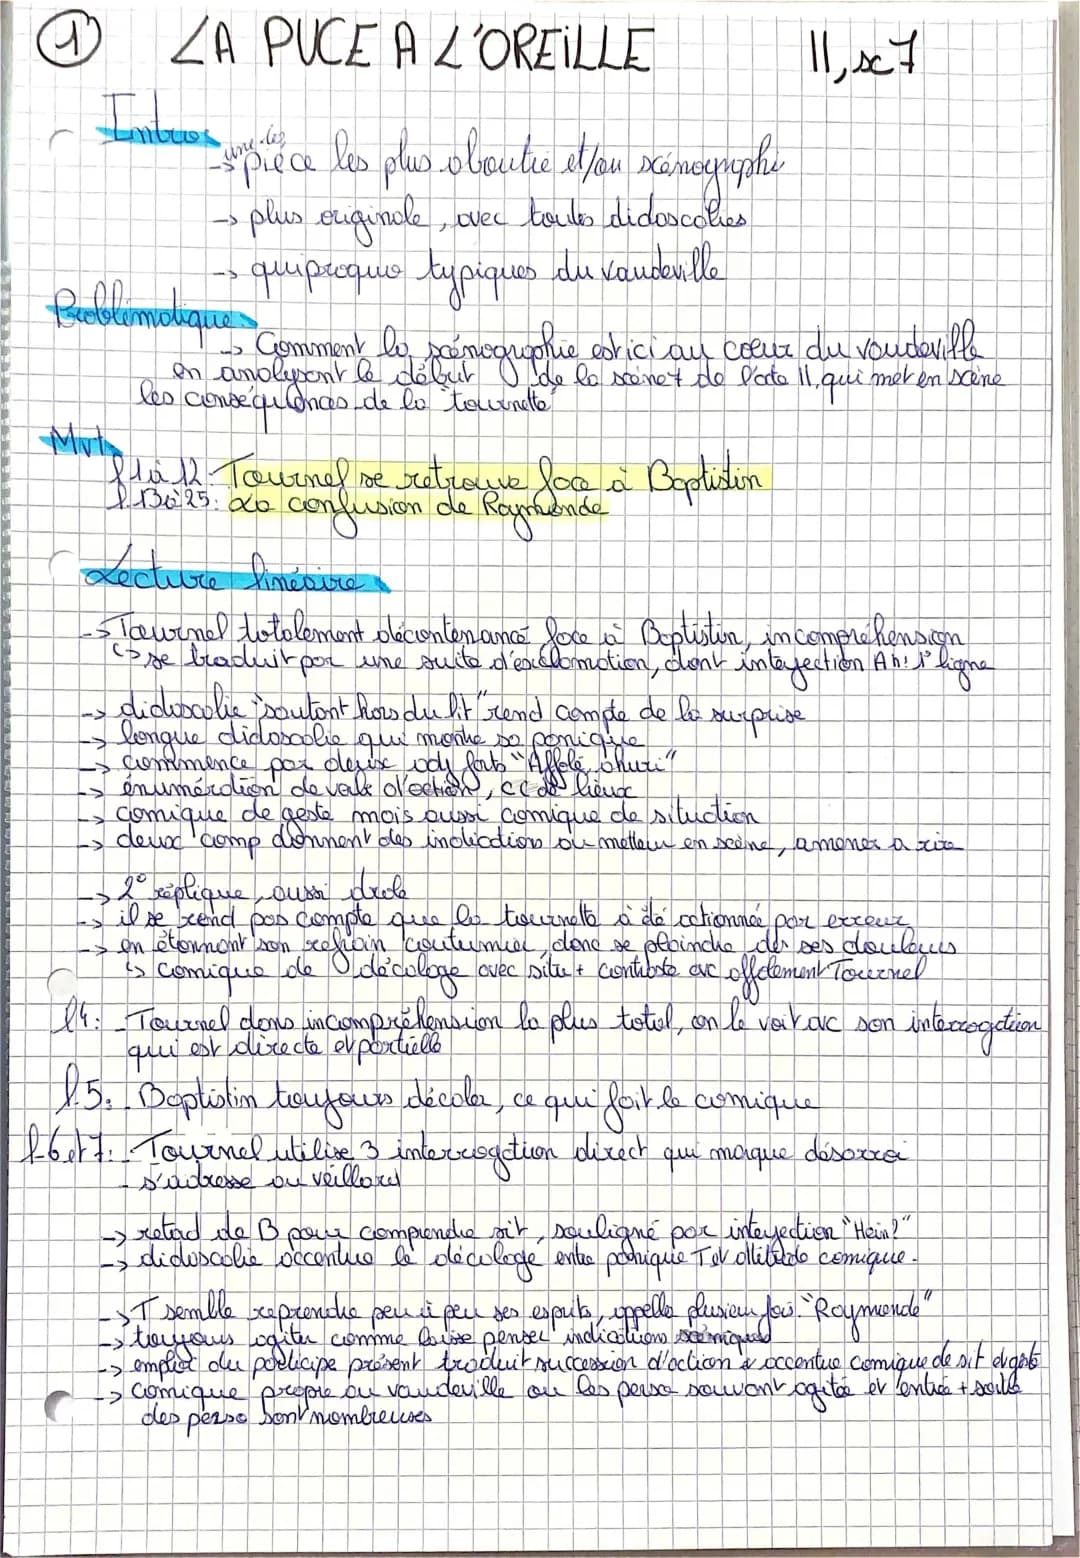 1 LA PUCE A L'OREILLE II, sc 7
Intro
une des
-> pièce les plus aboutie et/ou scénographi
-> plus originale, avec toutes didascalies
-> quiproquo typiques du vaudeville
Problématique
-> Comment la scénographie est ici au coeur du vaudeville
en analysant le début de la scène 7 de l'acte II, qui met en scène
les conséquences de la "tournette"
Mvts
l 1 à 12: Tournel se retrouve face à Baptistin
l. 13 à 25: La confusion de Raymonde
Lecture linéaire
-> Tournel totalement décontenancé face à Baptistin, incompréhension
↳ se traduit par une suite d'exclamation, dont interjection Ah! 1° ligne
-> didascalie "sautant hors du lit" rend compte de la surprise
-> longue didascalie qui montre sa panique
-> commence par deux adj forts "Affolé, ahuri"
-> énumération de verbe d'action, cc de lieux
-> comique de geste mais aussi comique de situction
-> deux comp donnent des indiction au metteur en scène, amener a rire
-> 2° réplique, aussi drole
-> il se rend pas compte que la tournette à été actionnée par erreur
-> en étonnant son refrain coutumier, donc se plaindre de ses douleurs
↳ comique de décalage avec situ + contraste avc affolement Tournel
l4: - Tournel dans incompréhension la plus total, on le voit avc son interrogation
qui est directe et partielle
l.5: - Baptistin toujours décaler, ce qui fait le comique
l.6 et 7: - Tournel utilise 3 interrogation direct qui marque désarroi
- s'adresse au vieillard
-> retard de B pour comprendre sit, souligné par interjection "Hein?"
-> didascalie accentue le décalage entre panique T et attitude comique.
-> T semble reprendre peu à peu ses esprits, appelle plusieur fois "Raymonde"
-> toujours agiter comme laisse penser indications scéniques
-> emploi du participe présent traduit succession d'action & accentue comique de sit et geste
-> comique propre au vaudeville ou les perso souvent agité et entrée + sortie
des perso sont nombreuses